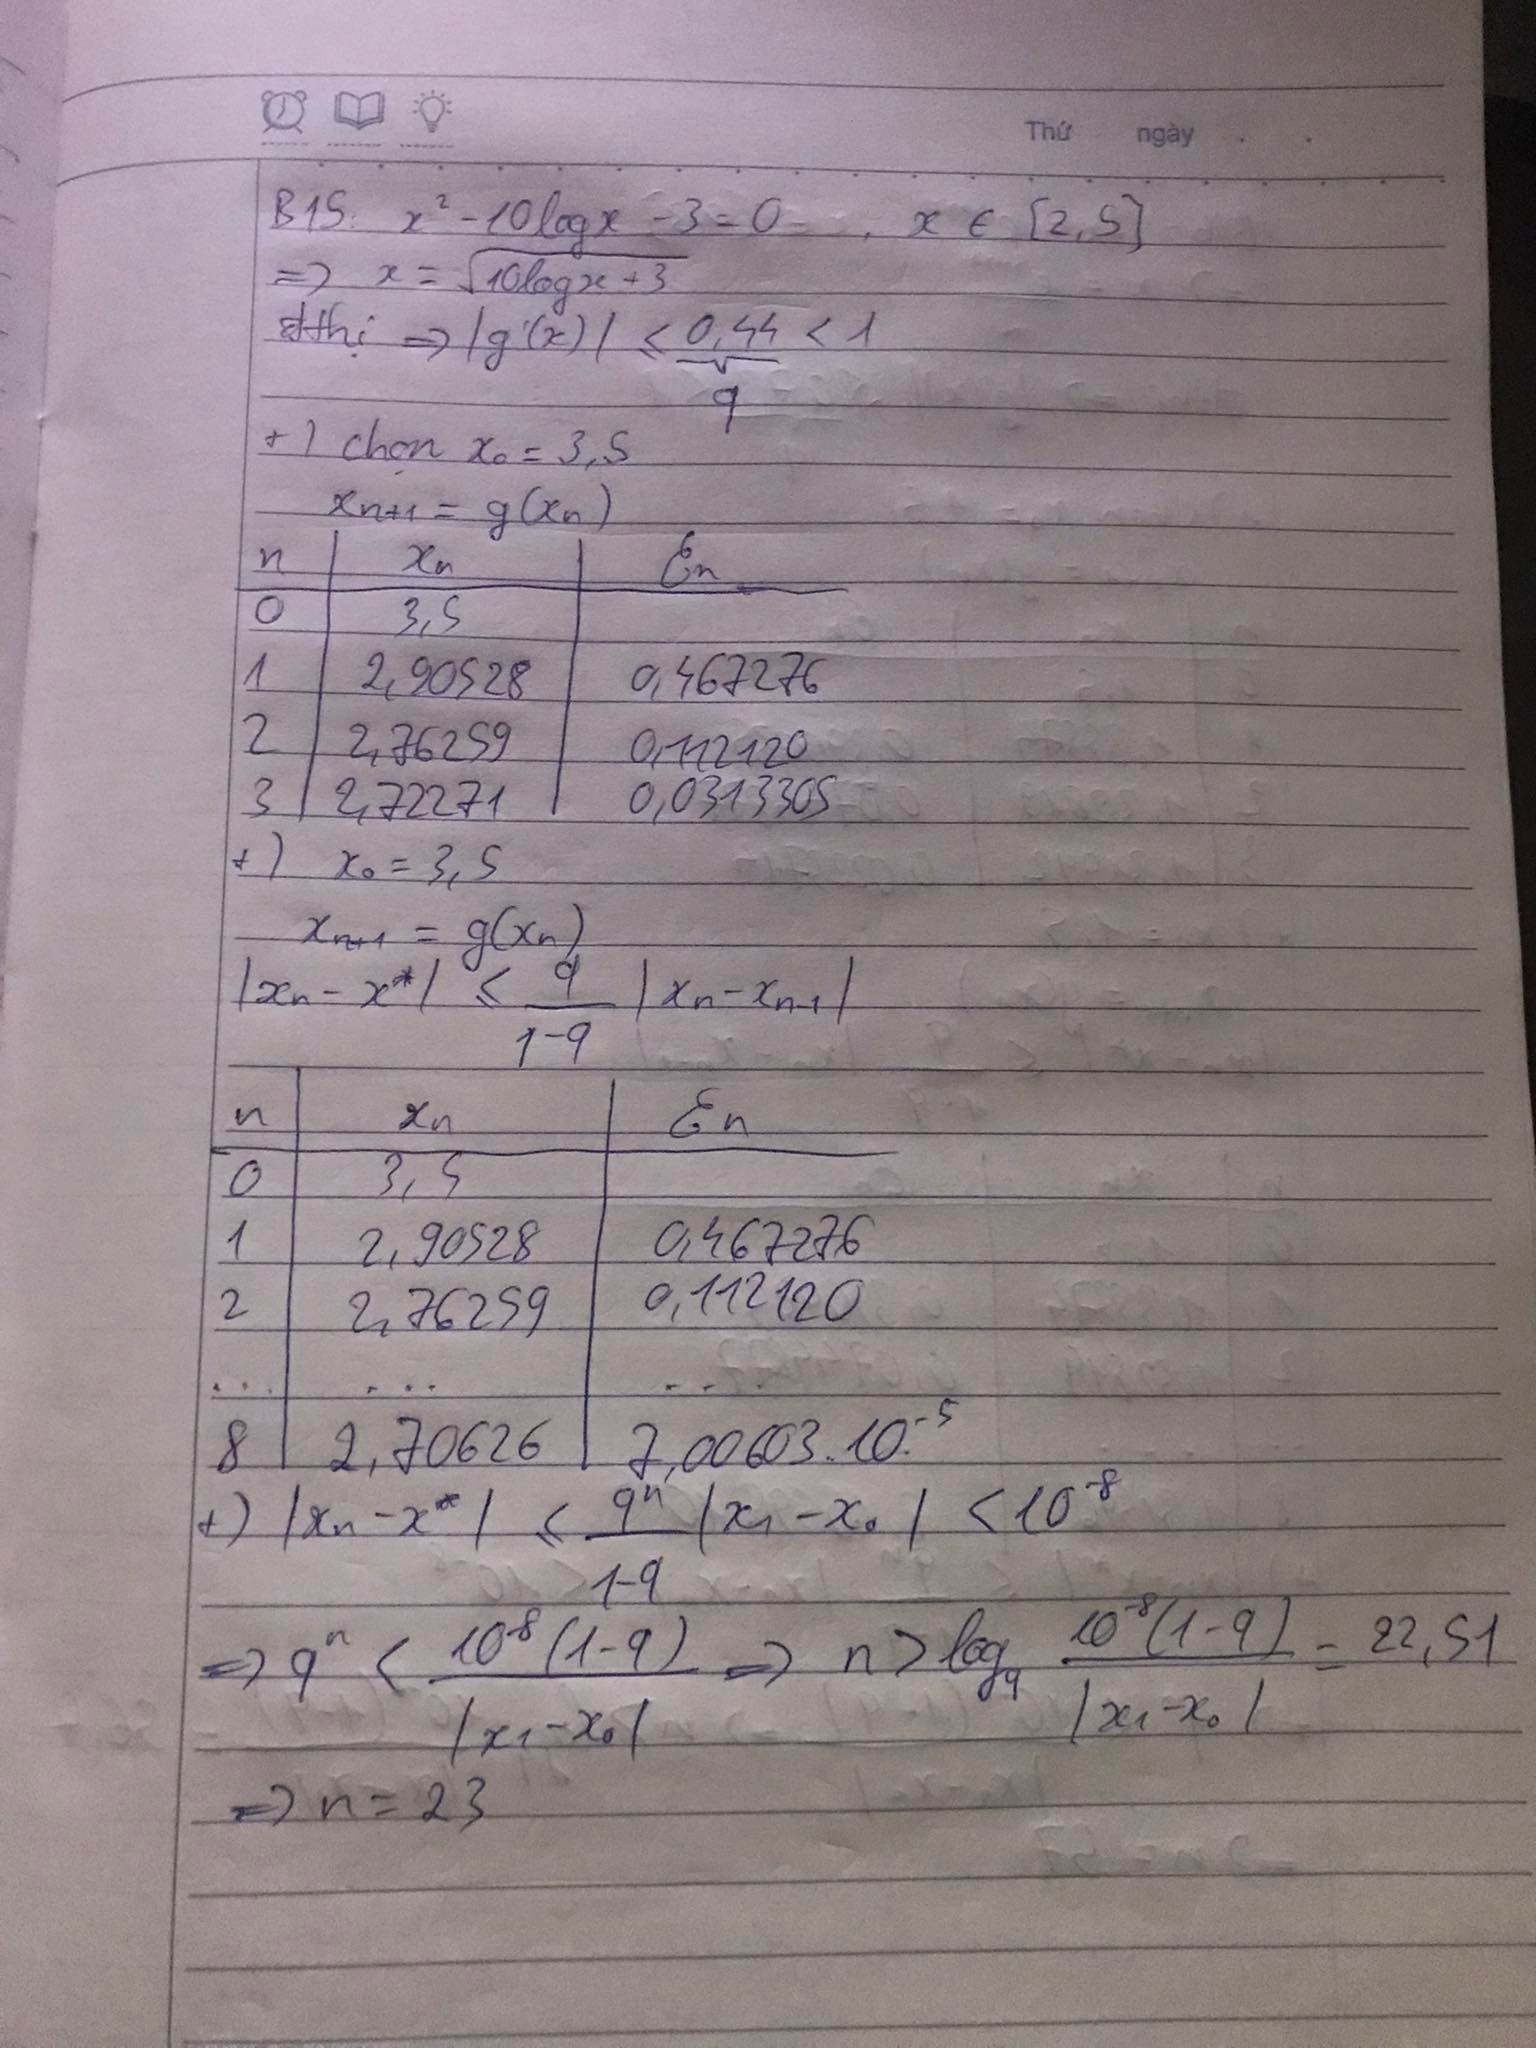 Thứ ngày . .
B15: x² - 10logx - 3 = 0 , x ∈ [2,5]
=> x = √(10logx + 3)
đthị => |g'(x)| ≤ 0,44 < 1
q
+) chọn x₀ = 3,5
xₙ₊₁ = g(xₙ)
n xₙ Ɛₙ
0 3,5
1 2,90528 0,467276
2 2,76259 0,112120
3 2,72271 0,0313305
+) x₀ = 3,5
xₙ₊₁ = g(xₙ)
|xₙ - x*| ≤ q/(1-q) |xₙ - xₙ₋₁|
n xₙ Ɛₙ
0 3,5
1 2,90528 0,467276
2 2,76259 0,112120
... ... ...
8 2,70626 7,00603.10⁻⁵
+) |xₙ - x*| ≤ qⁿ/(1-q) |x₁ - x₀| < 10⁻⁸
=> qⁿ < 10⁻⁸(1-q)/|x₁ - x₀| => n > log_q 10⁻⁸(1-q)/|x₁ - x₀| = 22,51
=> n = 23